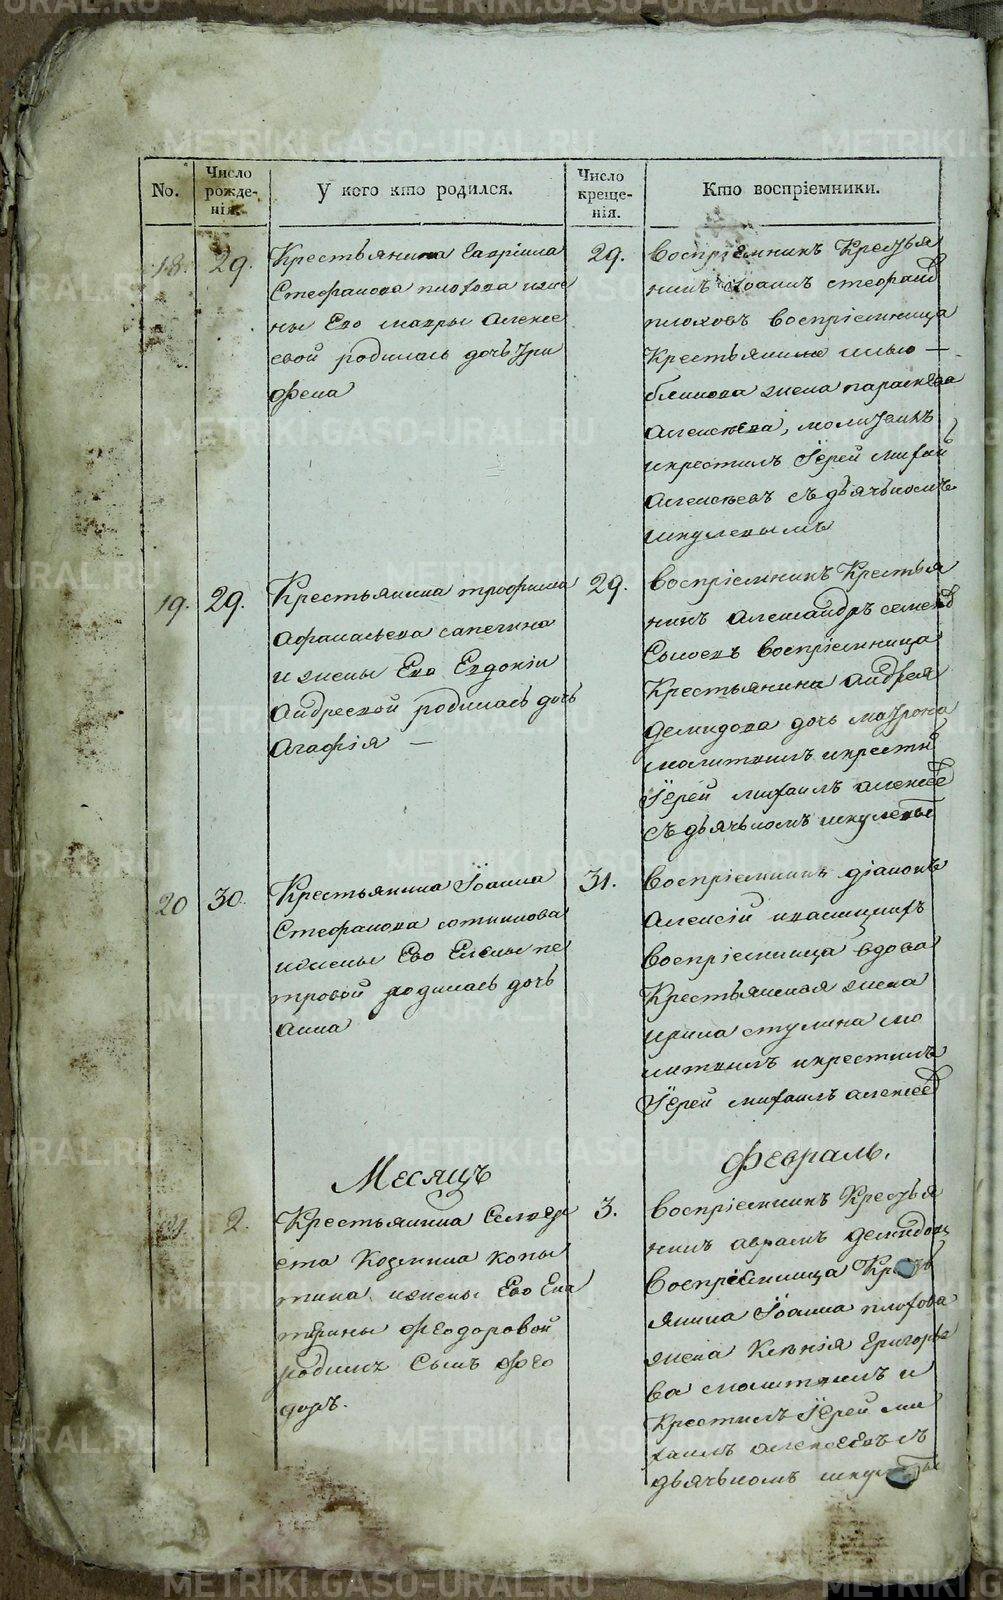 METRIKI.GASO-URAL.RU
No.
Число рожде-нія.
У кого кто родился.
Число креще-нія.
Кто воспріемники.
18.
29.
Крестьянина Гавріила
Стефанова плохова жене
ны Ево мавры Алексе
евой родилась дочь Три
фена
29.
воспріемникъ Крестья
нинъ Іоаннъ стефанов
плоховъ воспріемница
Крестьянина
блинова жена параскева
Алексеева, молитвилъ
икрестилъ Іерей михаи
Алексеевъ съ дьячькомъ
шкулевымъ
19.
29.
Крестьянина трофима
Афанасьева сапегина
и жены Ево Евдокіи
Андреевой родилась дочь
Агафія —
29.
воспріемникъ Крестья
нинъ Александръ семенов
Сысоевъ воспріемница
Крестьянина андрея
демидова дочь матрона
молитвилъ икрести
Іерей михаилъ алексее
съ дьячькомъ шкулевы
20
30.
Крестьянина Іоанна
Стефанова сотникова
ижены Ево Елены пе
тровой родилась дочь
анна
31.
воспріемникъ діаконъ
Алексій ивакинъ
воспріемница вдова
Крестьянская жена
ирина стулина мо
литвилъ икрестилъ
Іерей михаилъ алексеев
Месяцъ
Февраль.
21.
2.
Крестьянина Селивер
ста Козмина копы
тина ижены Ево Ека
терины Феодоровой
родился Сынъ Фео
доръ.
3.
воспріемникъ Крестья
нинъ аврамъ демидовъ
воспріемница Кресть
янина Іоанна плохова
жена Ксенія григорье
ва молитвилъ и
Крестилъ Іерей ми
хаилъ алексеевъ съ
дьячькомъ шкулевы